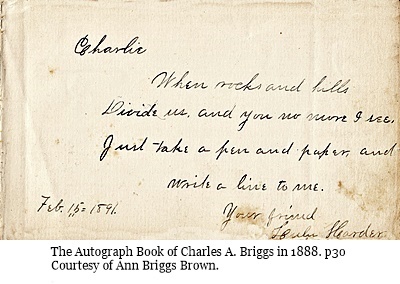 Charlie
When rocks and hills
Divide us, and you no more I see,
Just take a pen and paper, and
Write a line to me.
Feb. 15= 1891.
Your friend
Harder
The Autograph Book of Charles A. Briggs in 1888. p30
Courtesy of Ann Briggs Brown.